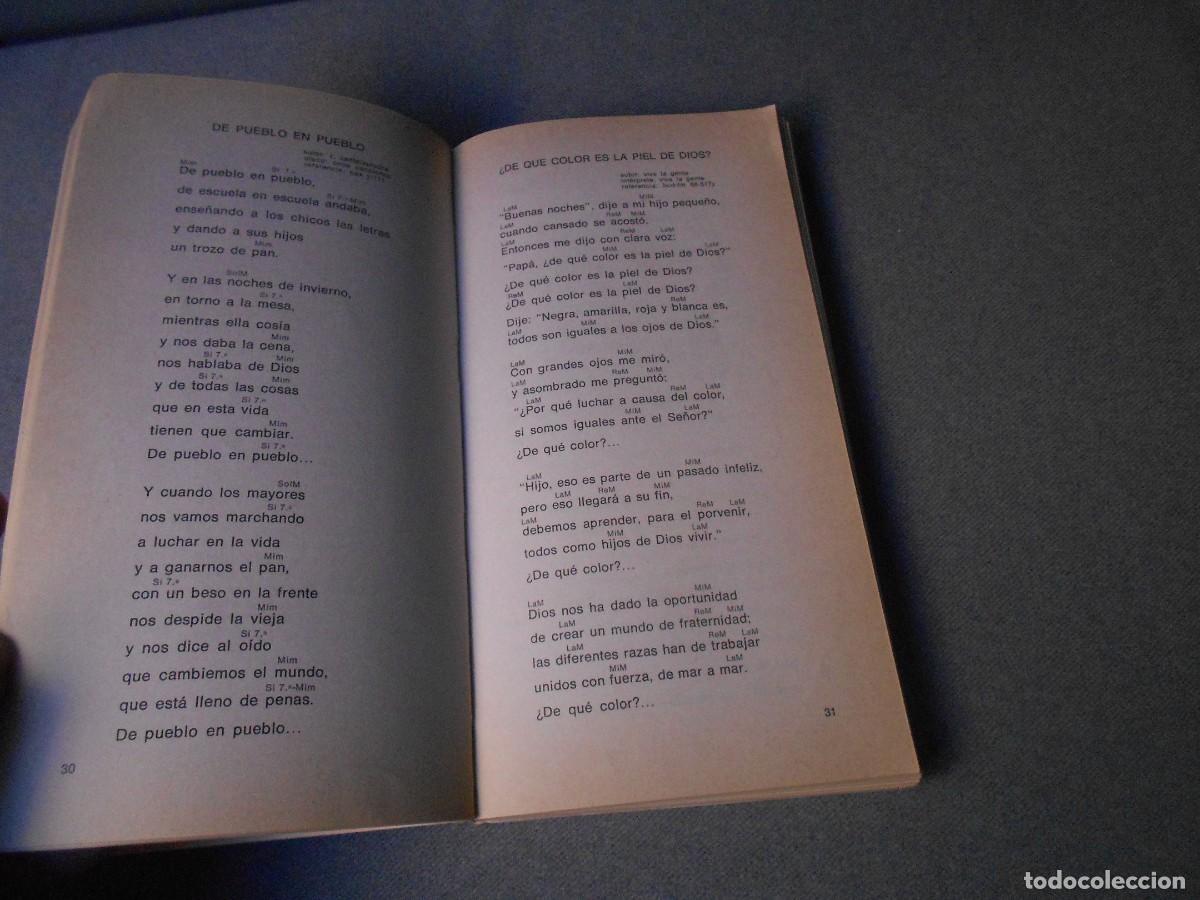 DE PUEBLO EN PUEBLO
Mim Si 7.ª
De pueblo en pueblo,
Si 7.ª-Mim
de escuela en escuela andaba,
enseñando a los chicos las letras
y dando a sus hijos
Mim
un trozo de pan.
SolM
Y en las noches de invierno,
Si 7.ª
en torno a la mesa,
mientras ella cosía
Mim
y nos daba la cena,
Si 7.ª Mim
nos hablaba de Dios
Si 7.ª Mim
y de todas las cosas
Si 7.ª
que en esta vida
Mim
tienen que cambiar.
Si 7.ª
De pueblo en pueblo...
SolM
Y cuando los mayores
Si 7.ª
nos vamos marchando
a luchar en la vida
Mim
y a ganarnos el pan,
Si 7.ª
con un beso en la frente
Mim
nos despide la vieja
Si 7.ª
y nos dice al oído
Mim
que cambiemos el mundo,
Si 7.ª-Mim
que está lleno de penas.
De pueblo en pueblo...
30
¿DE QUE COLOR ES LA PIEL DE DIOS?
autor: viva la gente
intérprete: viva la gente
referencia:
LaM MiM
"Buenas noches", dije a mi hijo pequeño,
LaM ReM MiM
cuando cansado se acostó,
LaM ReM LaM
Entonces me dijo con clara voz:
MiM LaM
"Papá, ¿de qué color es la piel de Dios?"
¿De qué color es la piel de Dios?
ReM LaM
¿De qué color es la piel de Dios?
ReM
Dije: "Negra, amarilla, roja y blanca es,
LaM MiM LaM
todos son iguales a los ojos de Dios."
LaM MiM
Con grandes ojos me miró,
LaM ReM MiM
y asombrado me preguntó:
LaM ReM LaM
"¿Por qué luchar a causa del color,
MiM LaM
si somos iguales ante el Señor?"
¿De qué color?...
LaM MiM
"Hijo, eso es parte de un pasado infeliz,
LaM ReM MiM
pero eso llegará a su fin,
LaM ReM LaM
debemos aprender, para el porvenir,
MiM LaM
todos como hijos de Dios vivir."
¿De qué color?...
LaM MiM
Dios nos ha dado la oportunidad
LaM ReM MiM
de crear un mundo de fraternidad;
LaM ReM LaM
las diferentes razas han de trabajar
MiM LaM
unidos con fuerza, de mar a mar.
¿De qué color?...
31
todocoleccion